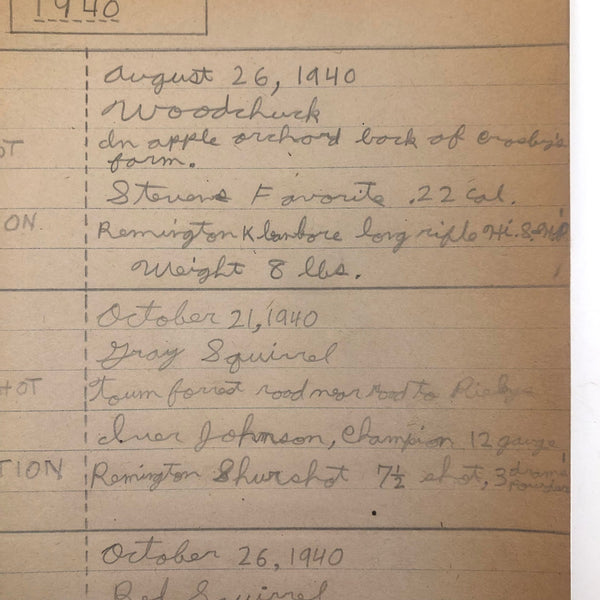 1940
August 26, 1940
Woodchuck
OT
In apple orchard back of Crosby's
farm.
Stevens Favorite .22 cal.
ON
Remington Kleanbore long rifle Hi.S.H.P.
Weight 8 lbs.
October 21, 1940
Gray Squirrel
HOT
Town forrest road near road to
Iver Johnson, Champion 12 gauge
TION
Remington Shurshot 7½ shot, 3 drams
powder
October 26, 1940
Red Squirrel